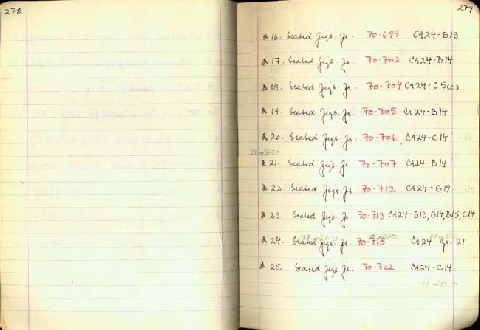 278
279
16. Seated Figs. fr. 70-699 CA24-B13
17. Seated Figs. fr. 70-702 CA24-B14
18. Seated Figs. fr. 70-704 CA24-C5(c)
19. Seated Figs. fr. 70-705 CA24-B14
20. Seated Figs. fr. 70-706 CA24-C14
21. Seated Figs. fr. 70-707 CA24-B14
22. Seated Figs. fr. 70-712 CA24-G19
23. Seated Figs. fr. 70-713 CA24-B13, B14, B15, C14
24. Seated Figs. fr. 70-718 CA24 21
25. Seated Figs. fr. 70-762 CA24-C14